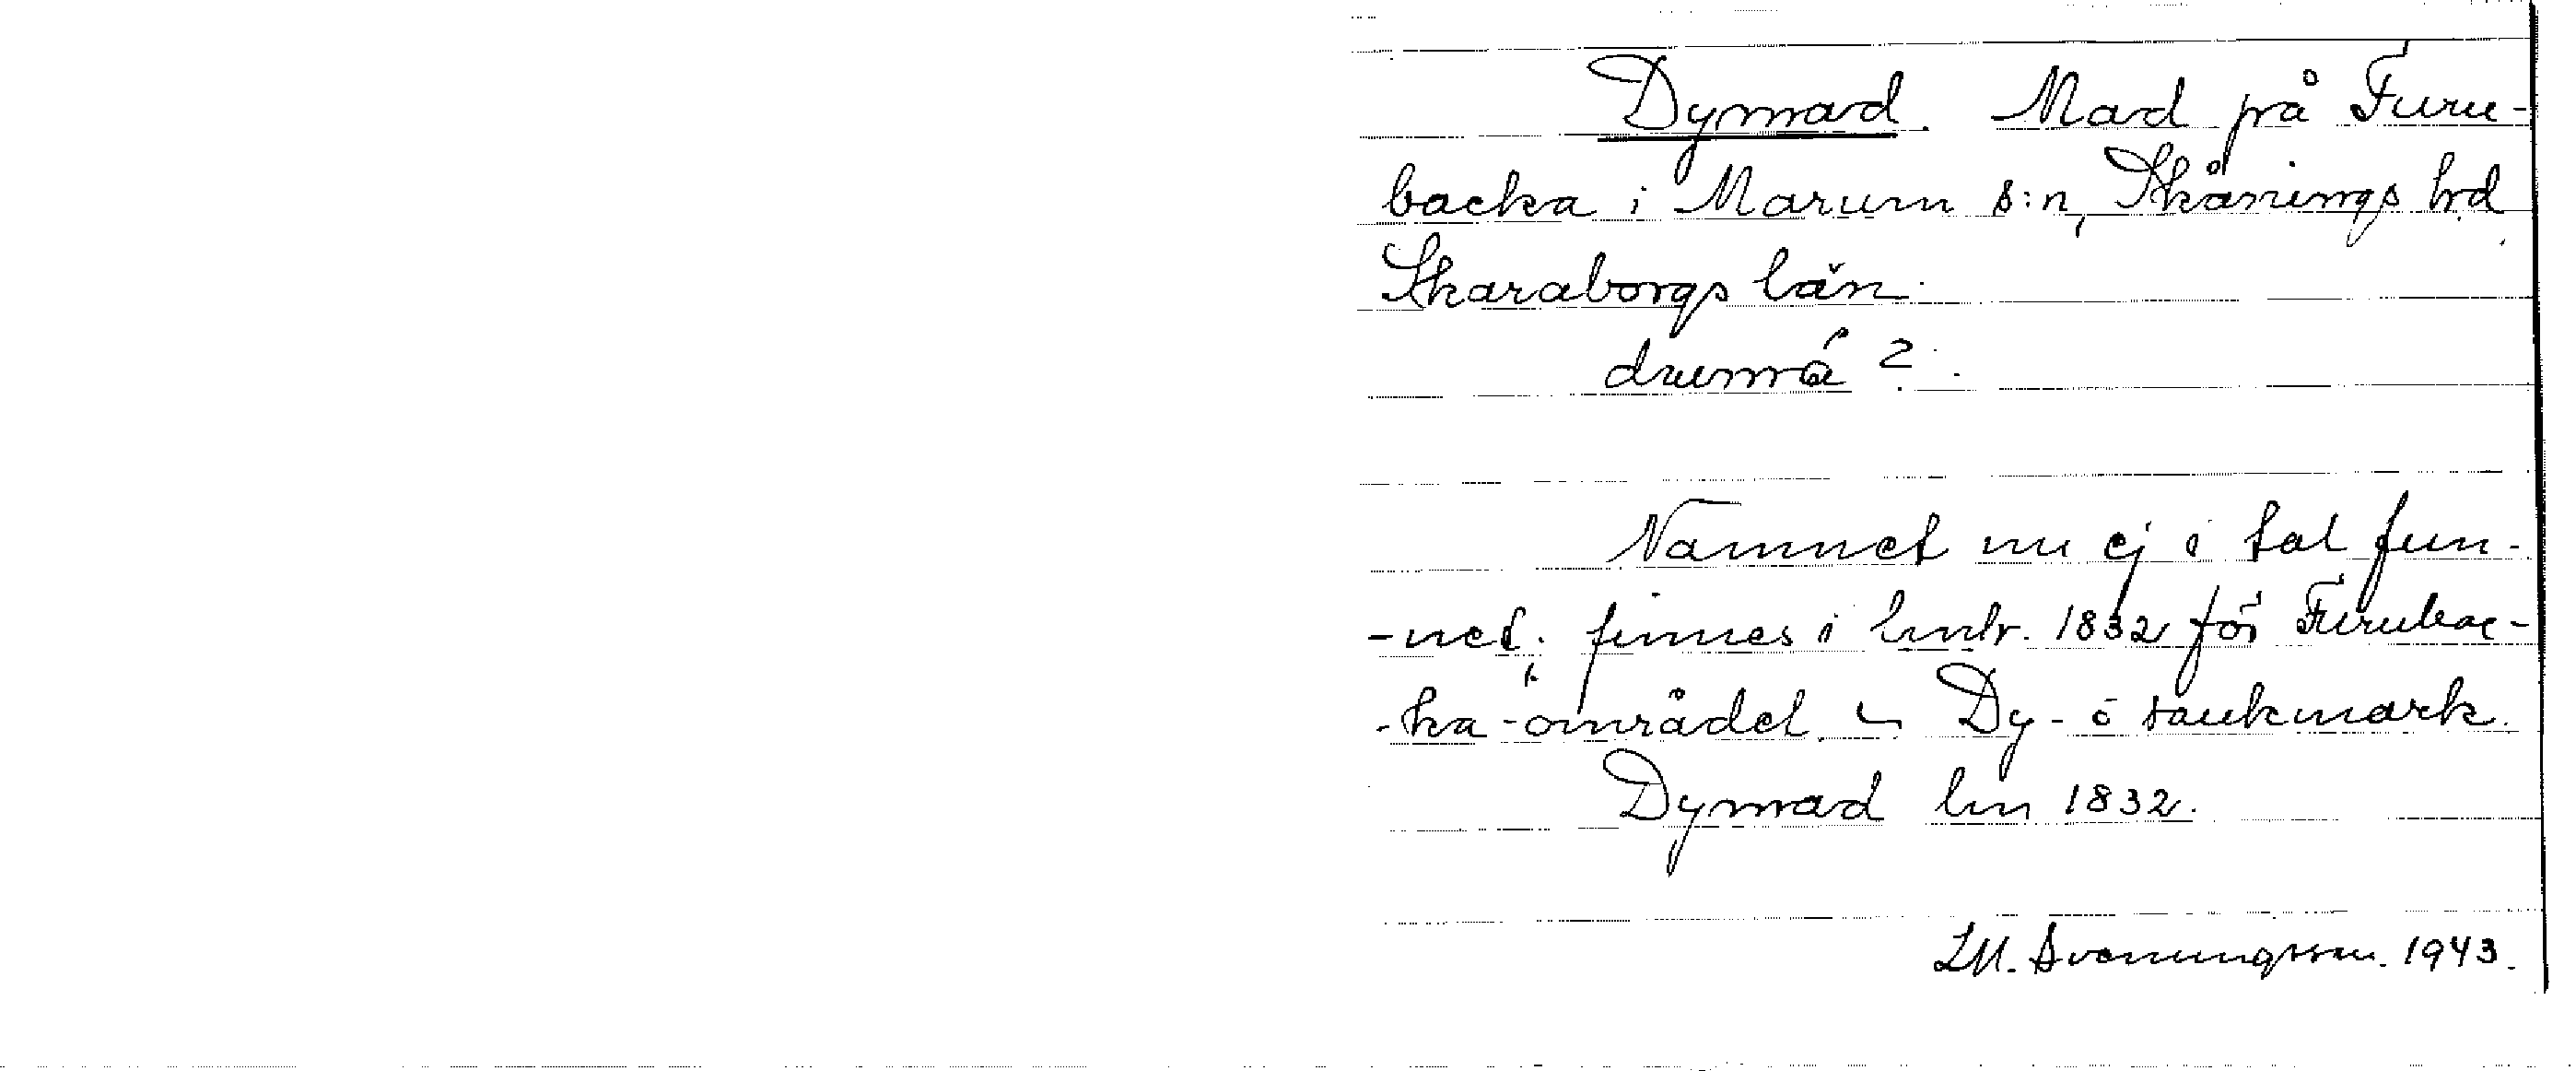 Dymad. Mad på Furu-
backa i Marum s:n, Skånings hd
Skaraborgs län.
dumá ?
Namnet nu ej i tal fun-
-net; finnes i hmtr. 1832 för Furubac-
-ka-området. Dy- ō sankmark.
Dymad hm 1832.
LM. Svenungsson. 1943.